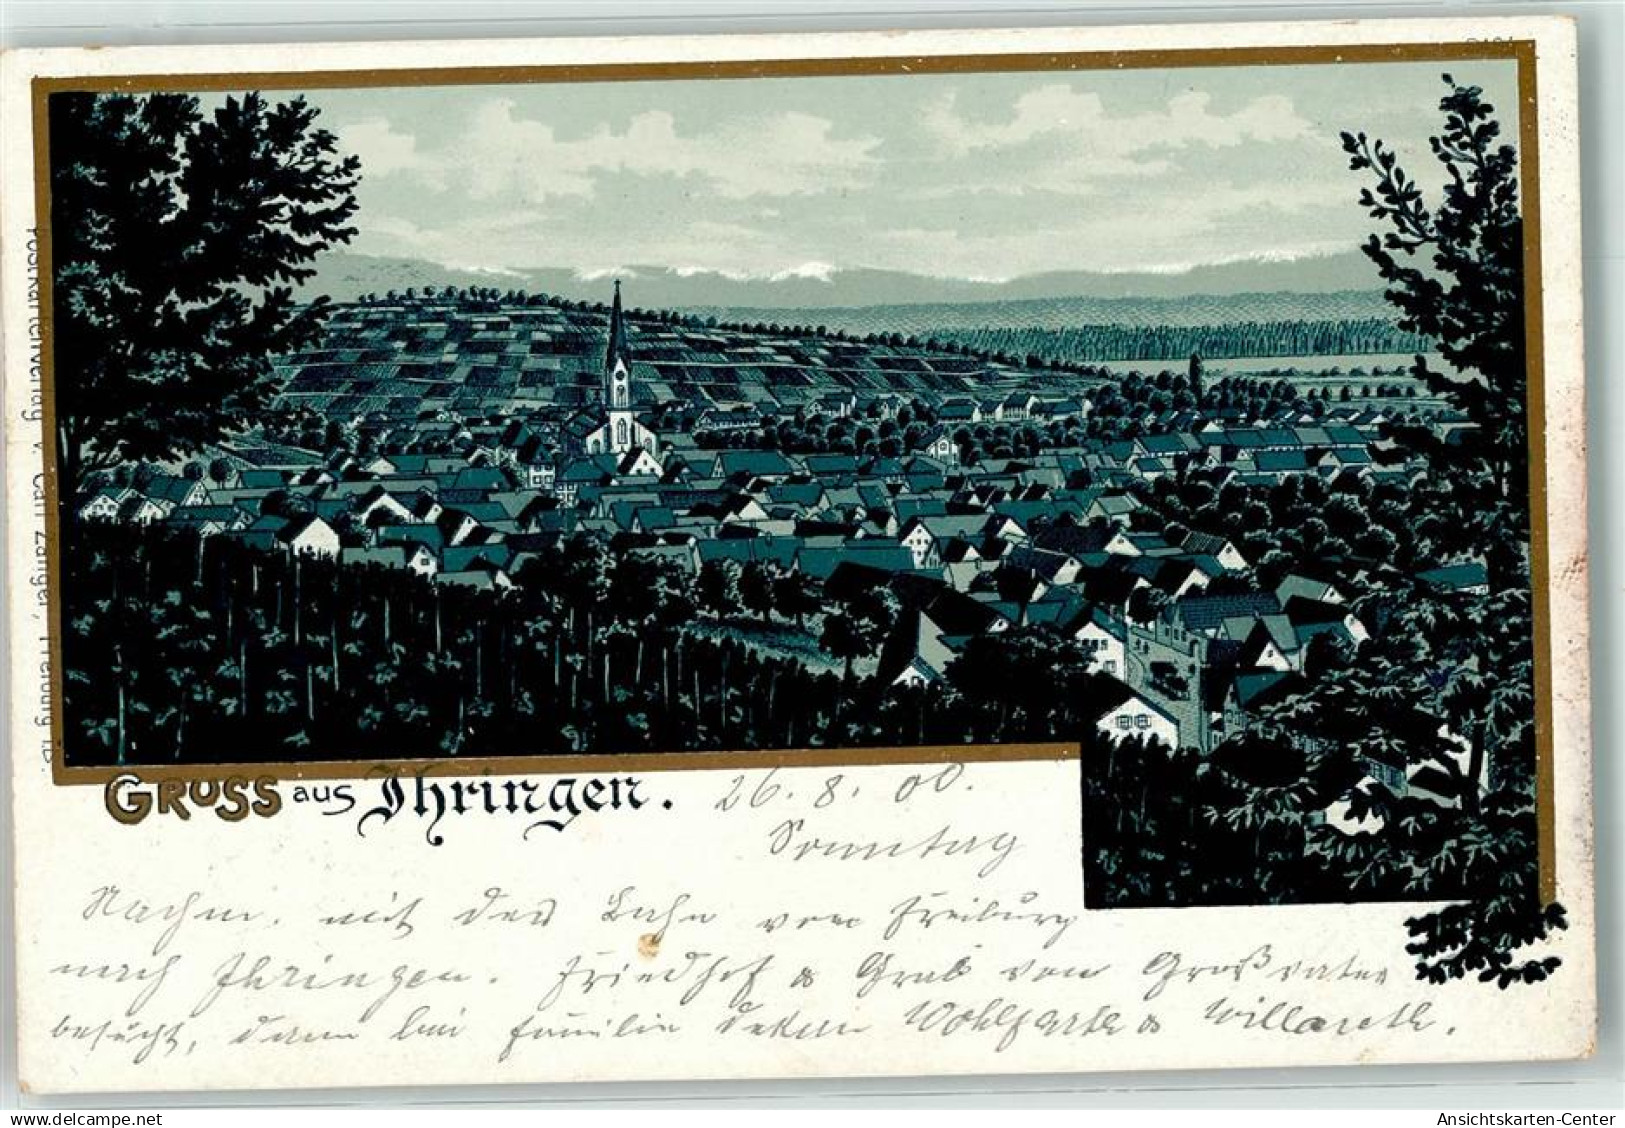 Postkartenverlag v. Carl Zänger, Freiburg i.B.
GRUSS aus Ihringen. 26. 8. 00.
Sonntag
Nachm. mit der Bahn von Freiburg
nach Ihringen. Friedhof & Grab von Großvater
besucht, dann bei Familie Dekan Wohlfarth &
delcampe.net
Ansichtskarten-Center